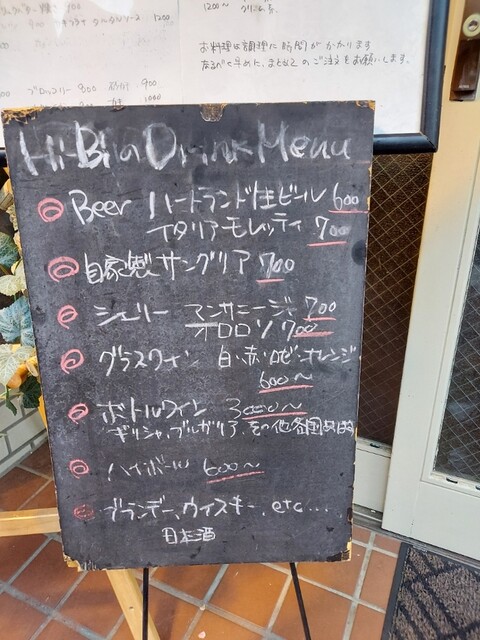 1200
1200~
900
お料理は調理に時間がかかります
なるべく早めに、まとめてのご注文をお願いします。
ブロッコリー 900
900
1000
Hi-Bi の Drink Menu
Beer ハートランド生ビール 600
イタリアーモレッティ 700
自家製サングリア 700
シェリー マンサニージャ 700
オロロソ 700
グラスワイン 白・赤・ロゼ・オレンジ
600~
ボトルワイン 3000~
ギリシャ、ブルガリア、その他各国
ハイボール 600~
ブランデー、ウィスキー、etc...
日本酒